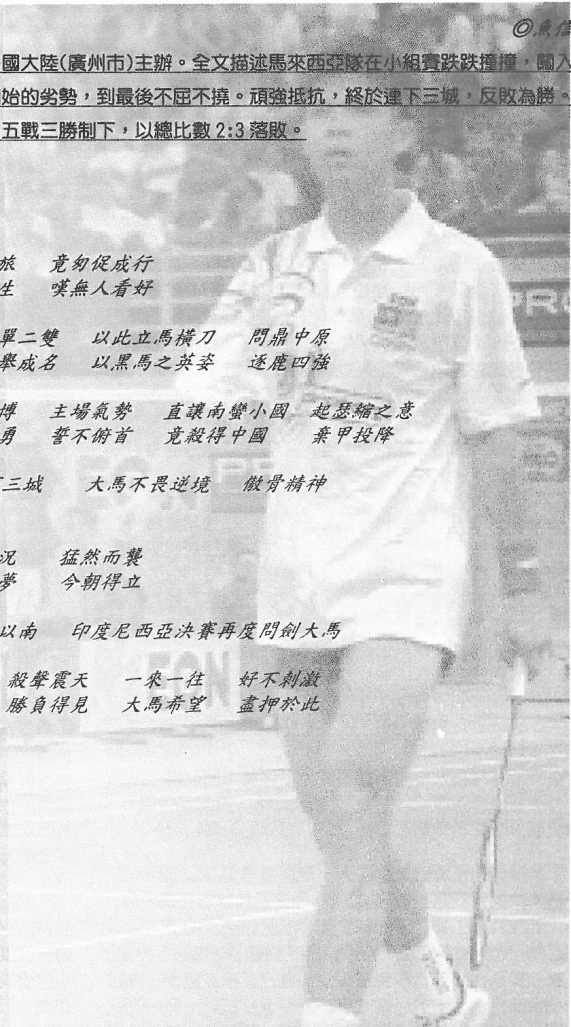 ◎魚信
國大陸(廣州市)主辦。全文描述馬來西亞隊在小組賽跌跌撞撞,闖入
始的劣勢,到最後不屈不撓。頑強抵抗,終於連下三城,反敗為勝。
五戰三勝制下,以總比數2:3落敗。
旅 竟匆促成行
生 嘆無人看好
單二雙 以此立馬橫刀 問鼎中原
舉成名 以黑馬之英姿 逐鹿四強
博 主場氣勢 直讓南蠻小國 起瑟縮之意
勇 誓不俯首 竟殺得中國 棄甲投降
三城 大馬不畏逆境 傲骨精神
況 猛然而襲
夢 今朝得立
以南 印度尼西亞決賽再度問劍大馬
殺聲震天 一來一往 好不刺激
勝負得見 大馬希望 盡押於此
EON